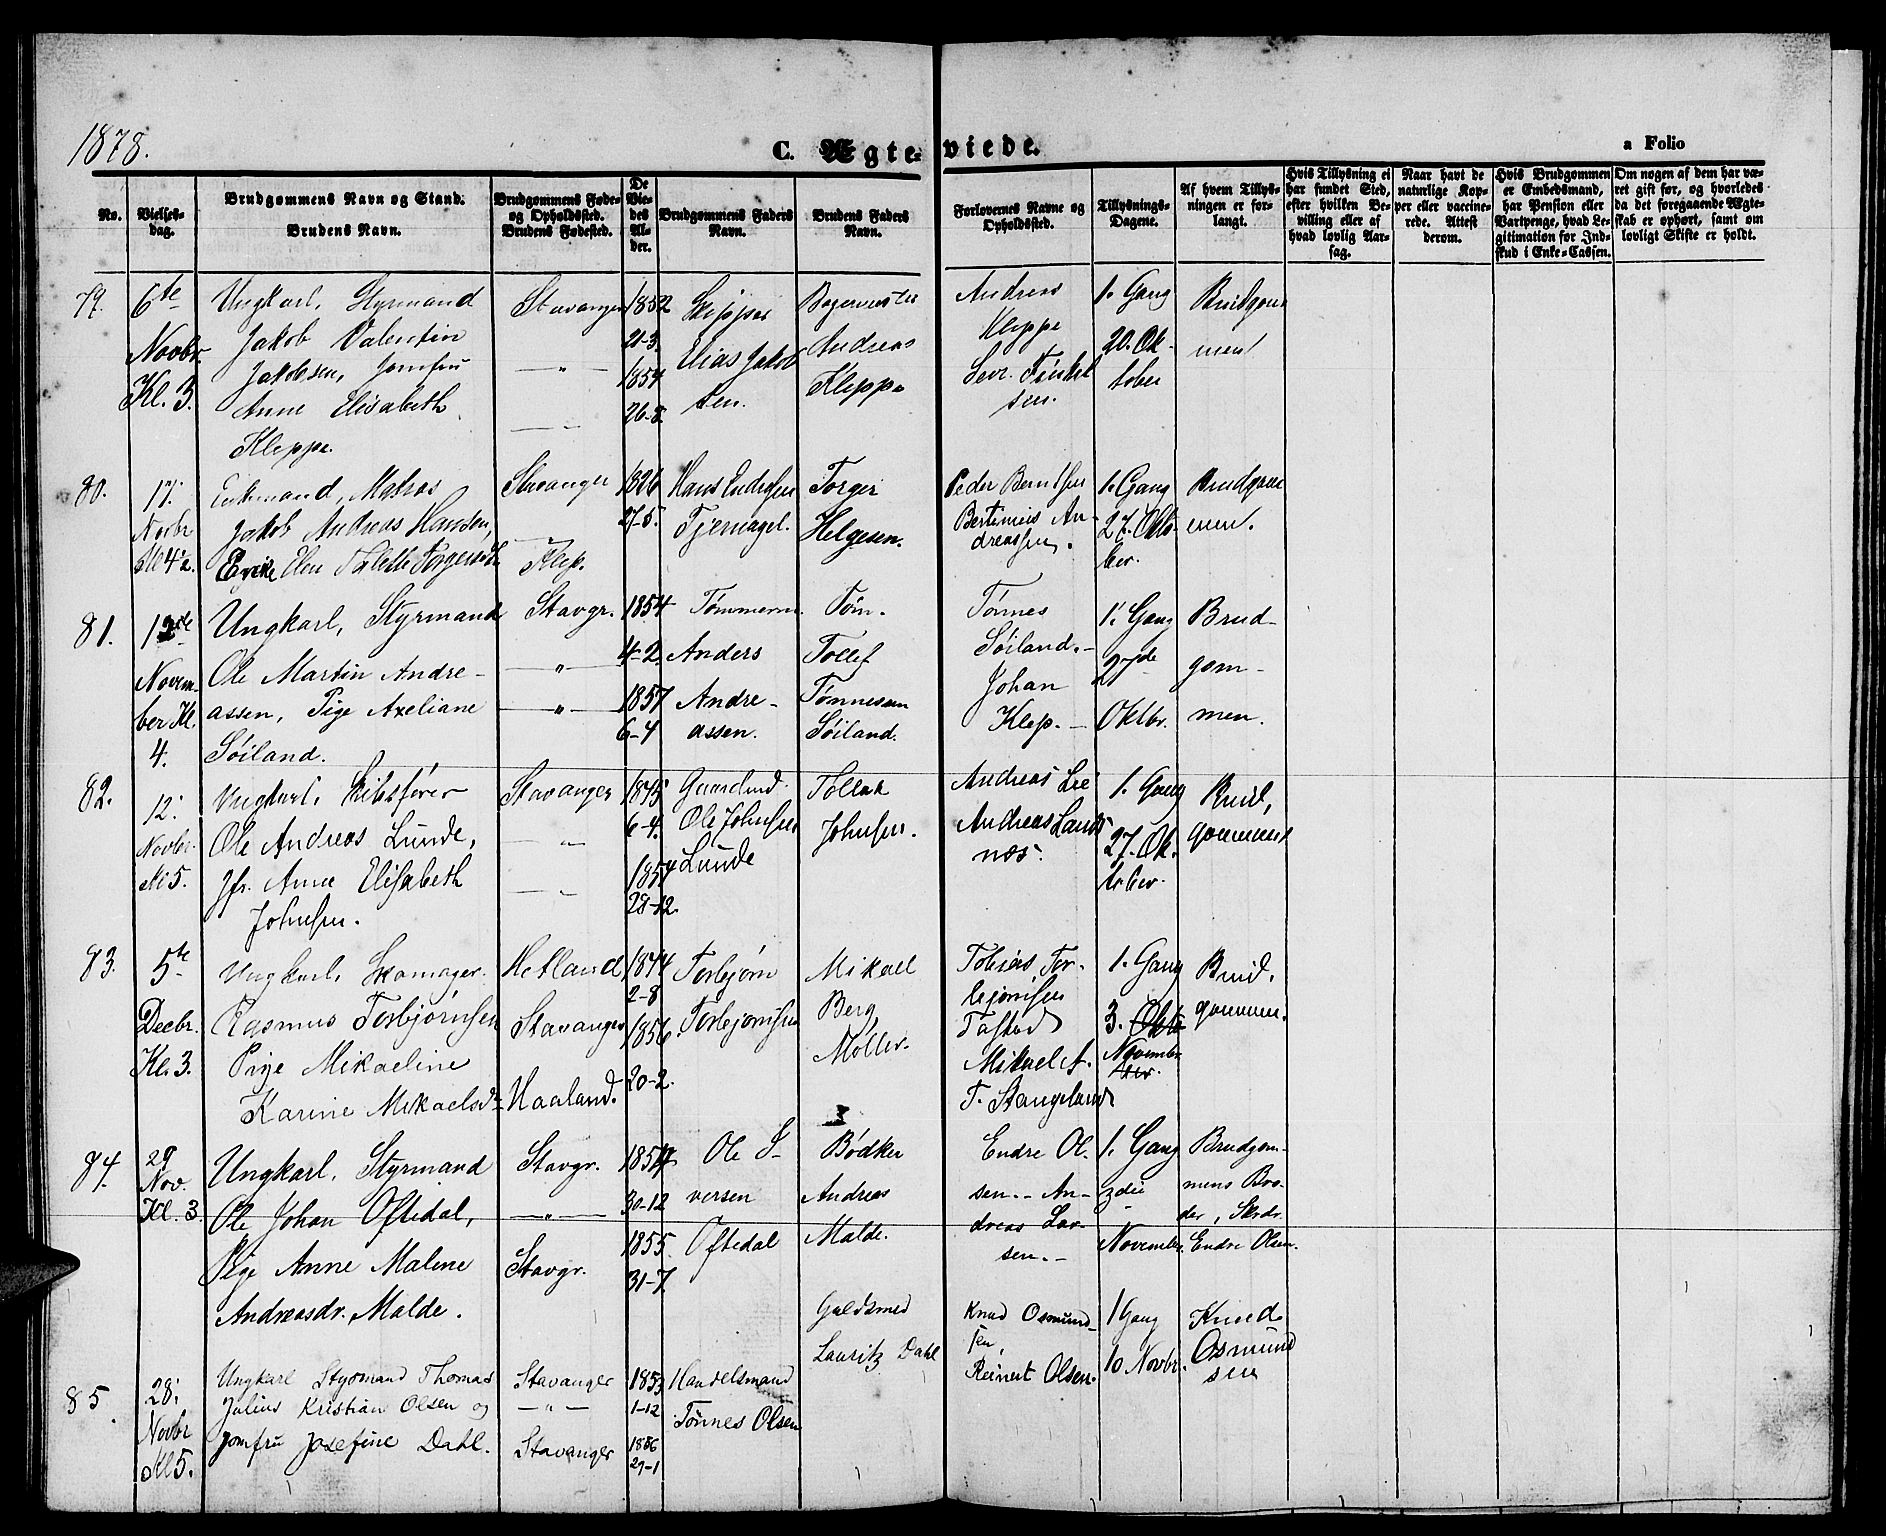 1878.
C. Ægteviede.
a Folio
No.
Vielses-
dag.
Brudgommens Navn og Stand.
Brudens Navn.
Brudgommens Føde-
og Opholdssted.
Brudens Fødested.
De
Vie-
des
Al-
der.
Brudgommens Faders
Navn.
Brudens Faders
Navn.
Forlovernes Navne og
Opholdssted.
Tillysnings-
Dagene.
Af hvem Tillys-
ningen er for-
langt.
Hvis Tillysning ei
har fundet Sted,
efter hvilken Be-
villing eller af
hvad lovlig Aar-
sag.
Naar havt de
naturlige Kop-
per eller vaccine-
rede. Attest
derom.
Hvis Brudgommen
er Embedsmand,
har Pension eller
Vartpenge, hvad Le-
gitimation for Ind-
skud i Enke-Cassen.
Om nogen af dem har væ-
ret gift før, og hvorledes
da det foregaaende Ægte-
skab er ophørt, samt om
lovligt Skifte er holdt.
79.
6te
Novbr.
Kl. 3.
Ungkarl, Styrmand
Jakob Valentin
Jakobsen, Jomfru
Anne Elisabeth
Kleppe.
Stavanger
— " —
— " —
1852
21-3.
1854
26-8.
Skipper
Elias Jakob
sen.
Bagermester
Andreas
Kleppe
Andreas
Kleppe
Sevr.
sen.
1. Gang
20. Ok-
tober
Brudgom
men
80.
17.
Novbr
Kl 4½.
Enkemand, Matros
Jakob Andreas Hansen,
Enke Elen Talette Torgersd.
Stavanger
Klep.
1826
27-5.
Hans Endresen
Tjernagel.
Torger
Helgesen.
Peder Berntsen
An-
dreassen.
1. Gang
27. Okto-
ber.
Brudgom
men.
81.
12te
Novem-
ber Kl.
4.
Ungkarl, Styrmand
Ole Martin Andre-
assen, Pige Axeliane
Søiland.
Stavgr.
— " —
— " —
1854
4-2
1857
6-4
Tømmerm.
Anders
Andre-
assen.
Tøm.
Tollef
Tønnesen
Søiland.
Tønnes
Søiland.-
Johan
Klep. -
1. Gang
27de
Oktbr.
Brud-
gom-
men.
82.
12.
Novbr.
Kl 5.
Ungkarl, Skibsfører
Ole Andreas Lunde,
Jfr. Anne Elisabeth
Johnsen.
Stavanger
— " —
— " —
1845
6-4.
1854
28-12.
Gaardmd.
Ole Johnsen
Lunde
Tollak
Johnsen.
Andreas Lie
Andreas Lands
næs.
1. Gang
27. Ok.
tober.
Brud,
gommen
83.
5te
Decbr.
Kl. 3.
Ungkarl, Skomager.
Rasmus Torbjørnsen
Pige Mikaeline
Karine Mikaelsdr.
Hetland
Stavanger
Haaland.
1844
2-8
1856.
20-2.
Torbjørn
Torbjørnsen
Mikael
Berg,
Møller.
Tobias Tor-
bjørnsen
Tastad
Mikael A.
T. Stangeland
1. Gang
3. Okto
Novembr.
ber.
Brud,
gommen.
84.
29
Nov.
Kl. 3.
Ungkarl, Styrmand
Ole Johan Oftedal,
Pige Anne Malene
Andreasdr. Malde.
Stavgr.
— " —
Stavgr.
1854
30-12
1855.
31-7
Ole S-
versen
Oftedal
Bødker
Andreas
Malde.
Endre Ol-
sen.- An-
dreas Lar-
sen. -
1. Gang
3die
November.
Brudgom-
mens Bro-
der, Skrdr.
Endre Olsen.
85.
28.
Novbr
Kl 5.
Ungkarl Styrmand Thomas
Julius Kristian Olsen og
Jomfru Josefine Dahl.
Stavanger
— " —
Stavanger
1853
1-12
1856
29-1
Handelsmand
Tønnes Olsen
Guldsmed
Lauritz Dahl
Knud Osmund-
sen,
Reinert Olsen.
1 Gang
10 Novbr.
Knud
Osmund
sen